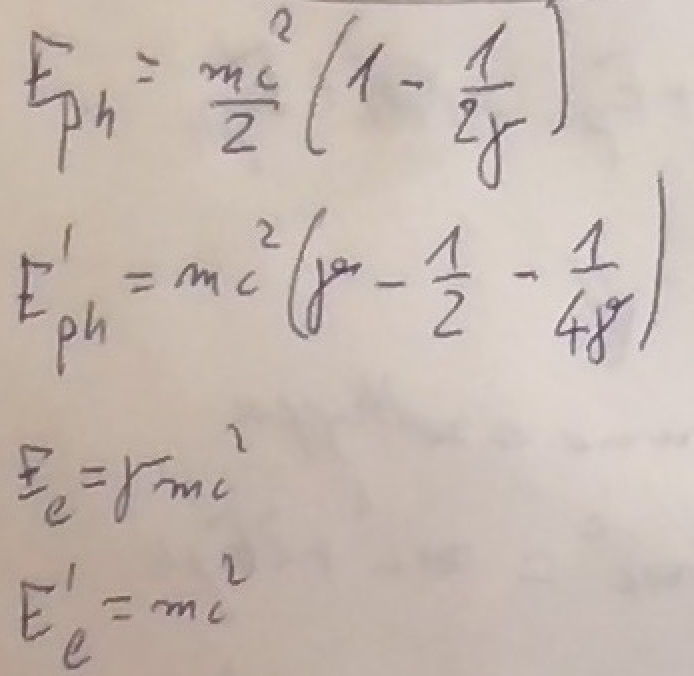 E_ph = mc²/2 (1 - 1/2γ)
E'_ph = mc² (γ - 1/2 - 1/4γ)
E_e = γmc²
E'_e = mc²